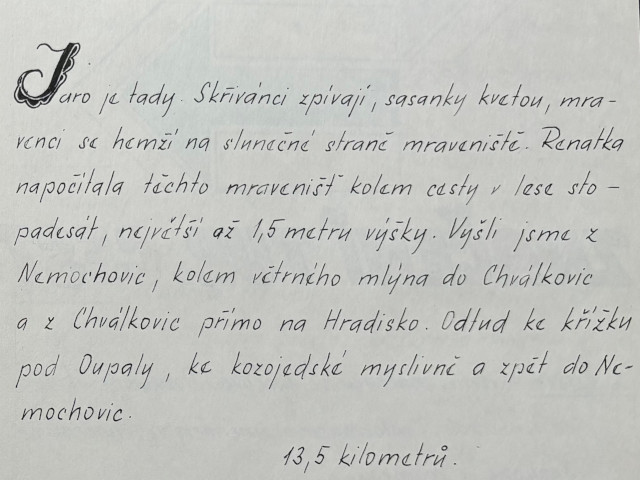 Jaro je tady. Skřivánci zpívají, sasanky kvetou, mra-
venci se hemží na slunečné straně mraveniště. Renatka
napočítala těchto mravenišť kolem cesty v lese sto-
padesát, největší až 1,5 metru výšky. Vyšli jsme z
Nemochovic, kolem větrného mlýna do Chválkovic
a z Chválkovic přímo na Hradisko. Odtud ke křížku
pod Oupaly, ke kozojedské myslivně a zpět do Ne-
mochovic.
13,5 kilometrů.